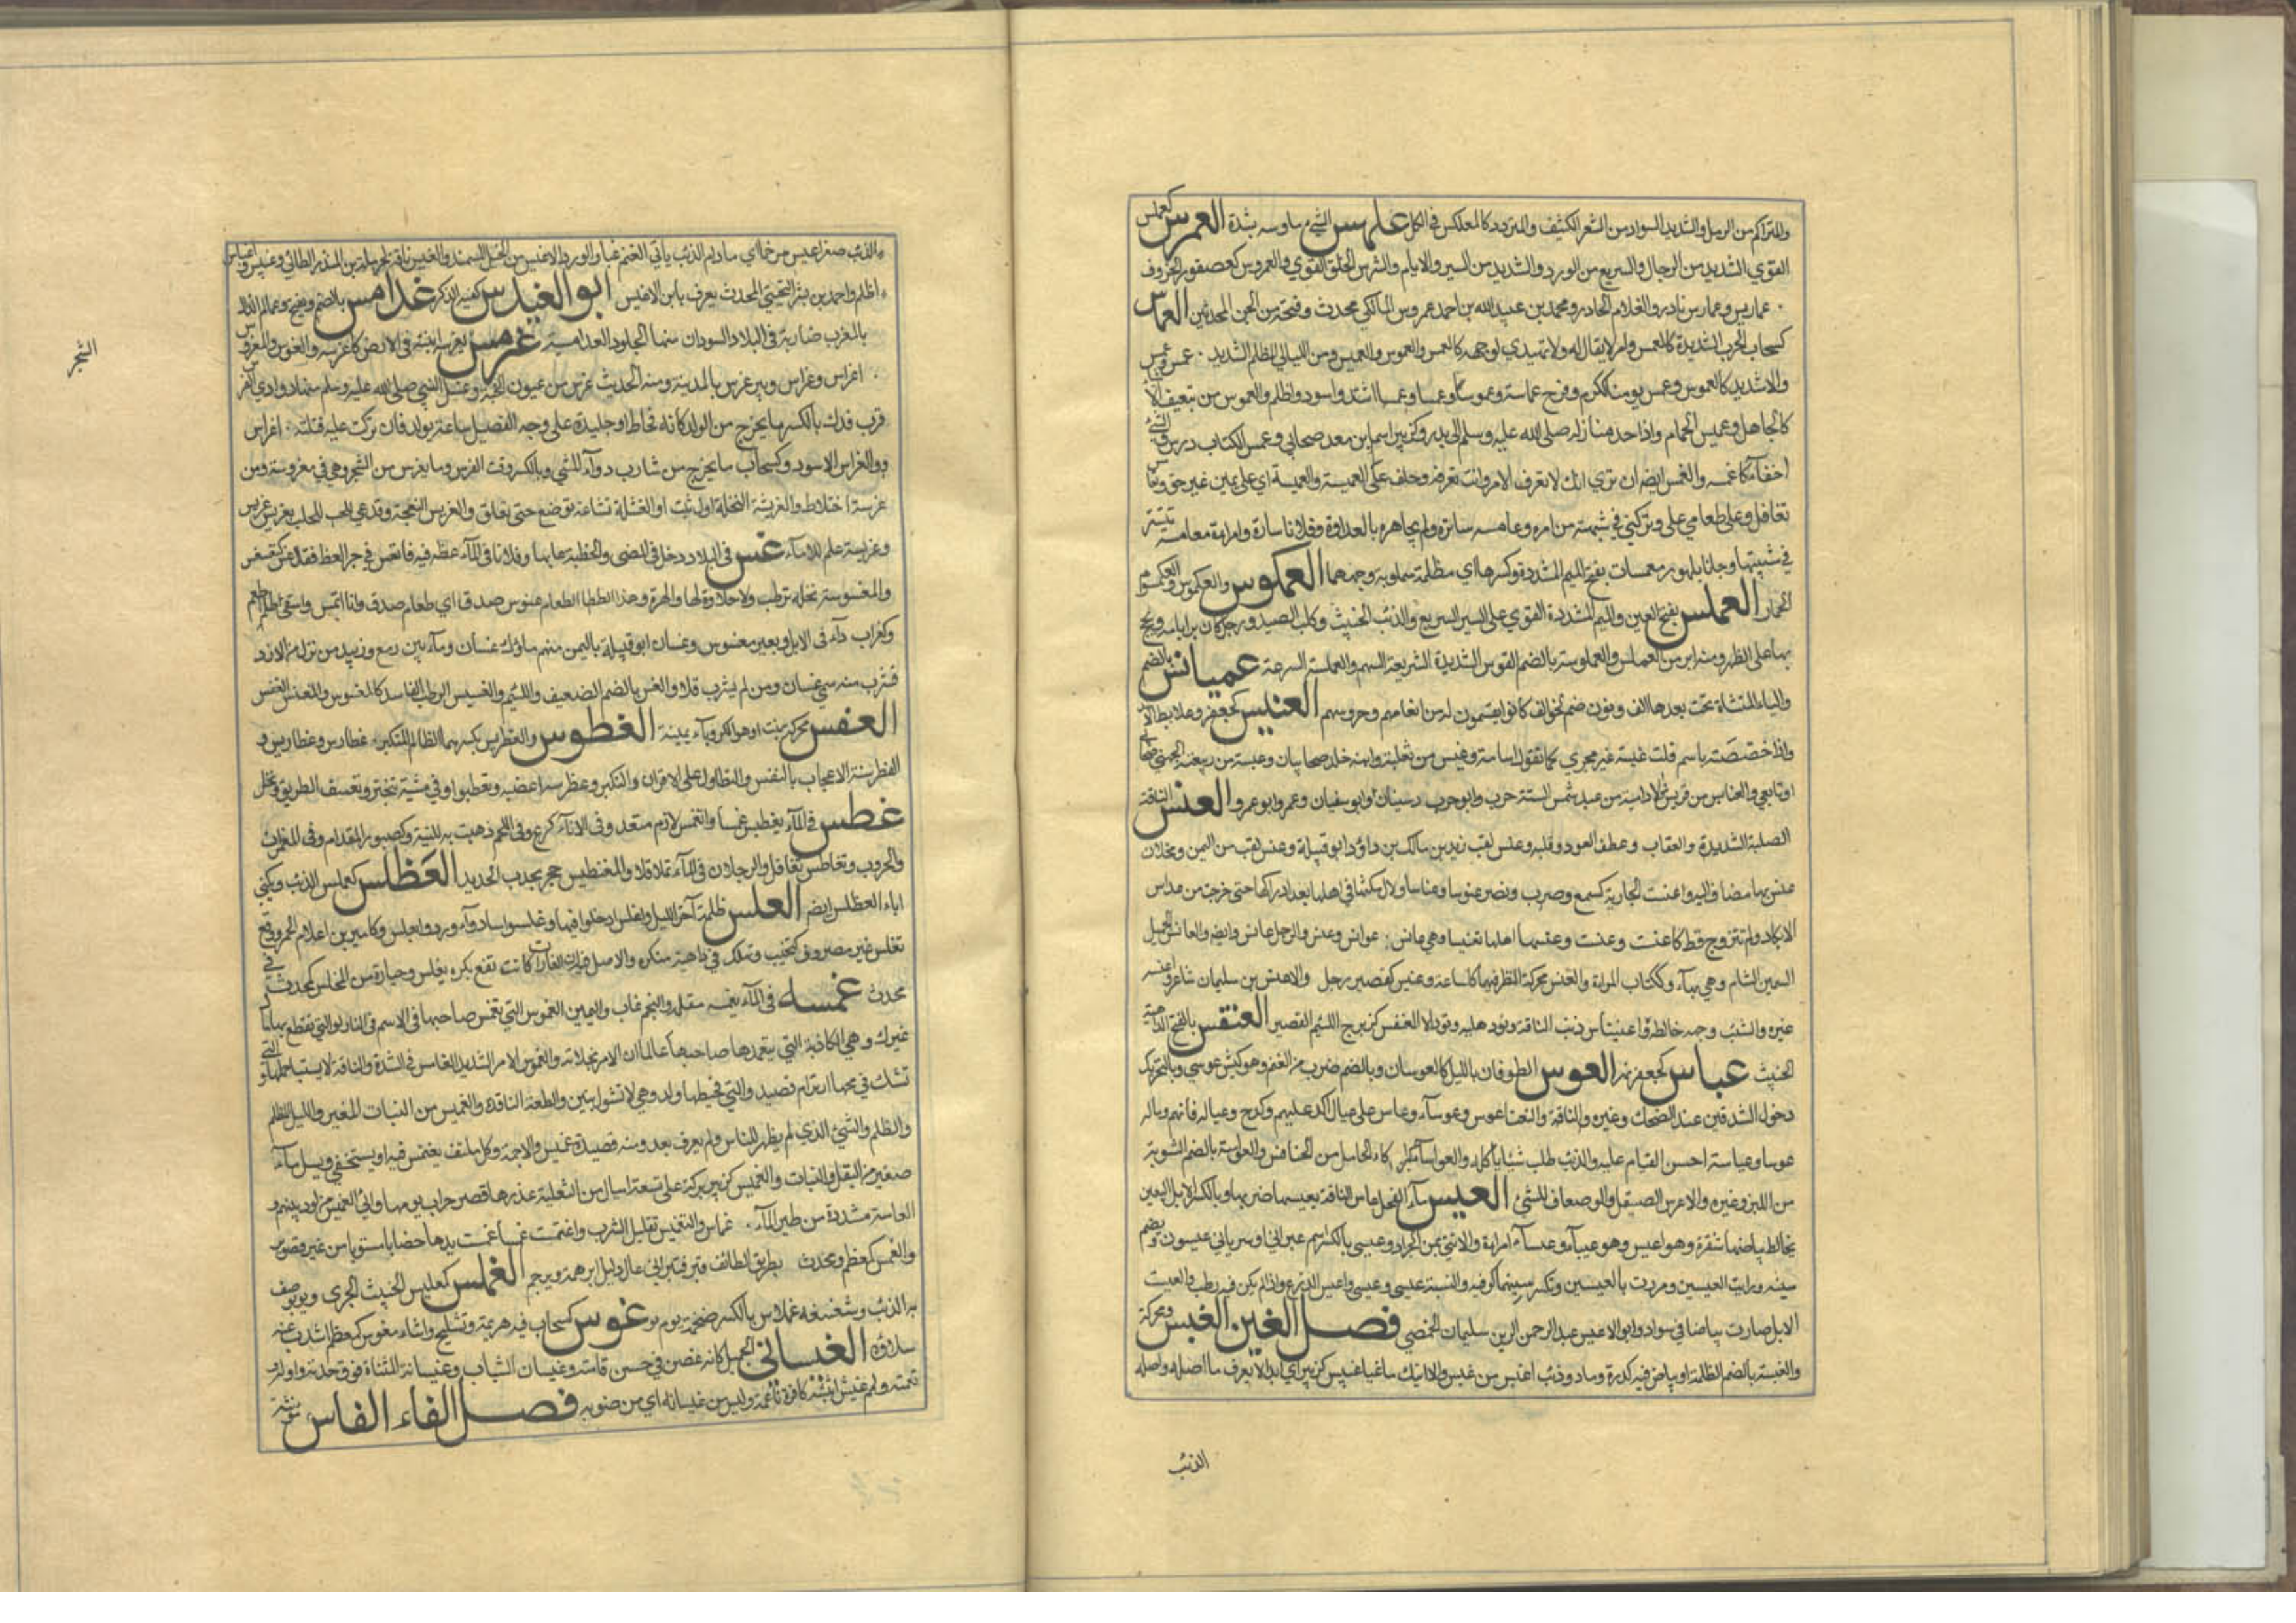 والمتراكم من الرمل والشديد السواد من الشعر الكثيف والمتردد كالمعلكس في الكل علهس الشيء مارسه بشدة العمرس كعملس
القوي الشديد من الرجال والسريع من الورد والشديد من السير والايام والشرس الخلق القوي والعمروس كعصفور الخروف
عماريس وعمارس نادر والغلام الحادر ومحمد بن عبيد الله بن احمد عمروس المالكي محدث وفتحه من لحن المحدثين العماس
كسحاب الحرب الشديدة كالعمس وامر لا يقال له ولا يهتدي لوجهه كالعمس والعموس والعميس ومن الليالي المظلم الشديد عمس وعمس
والاسد الشديد كالعموس وعمس يومنا ككرم وفرح عماسة وعموسا وعمسا وعمسا اشتد واسود واظلم والعموس من يتعسف الاشياء
كالجاهل وعميس الحمام واد احد منازله صلى الله عليه وسلم الى بدر وكزبير اسم ابن معد صحابي وعمس الكتاب درس والشئ
اخفاه كاعمسه والعمس ايضا ان تري انك لا تعرف الامر وانت تعرفه وحلف على العميسة والعميسة اي على يمين غير حق وتعامس
تغافل وعلي تعامي علي وتركني في شبهة من امره وعامسه ساتره ولم يجاهره بالعداوة وفلانا ساره وامراة معامسة تتستر
في شبيبتها وجانا بامور معمسات بفتح الميم المشددة وكسرها اي مظلمة ملوية عن وجهها العمكوس والعكموس والكعسوم
الحمار العملس بفتح العين والميم المشددة القوي على السير السريع والذئب الخبيث وكلب الصيد ورجل كان برا بامه ويحج
بها على ظهره ومنه ابر من العملس والعملوسة بالضم القوس الشديدة السريعة السهم والعملسة السرعة عميانس بالضم
والياء المثناة تحت بعدها الف ونون صنم لخولان كانوا يقسمون له من انعامهم وحروثهم العنبس كجعفر وعلابط الاسد
واذا خصصته باسم قلت عنبسة غير مجري كما تقول اسامة وعنبس من ثعلبة وابنه خلد صحابيان وعنبسة بن ربيعة الجهني صحابي
او تابعي والعنابس من قريش اولاد امية بن عبد شمس الستة حرب وابو حرب وسفيان وابو سفيان وعمرو وابو عمرو العنس الناقة
الصلبة الشديدة والعقاب وعطف العود وقلبه وعنس لقب زيد بن مالك بن داؤد ابو قبيلة وعنس لقب من اليمن ومخلاف
عنس بها مضاف اليه وعنست الجارية كسمع وضرب ونصر عنوسا وعناسا وطال مكثها في اهلها بعد ادراكها حتى خرجت من عداس
الابكار ولم تتزوج قط كاعنست وعنست وعنسها اهلها تعنيسا وهي عانس عوانس وعنس والرجل عانس وايضا والعانس الجمل
السمين التام وهي بهاء وككتاب المراة والعنس محركة النظر فيها كل ساعة وعنيس كقصير رجل والاعنس بن سليمان شاعر واعنسه
غيره والشيب وجهه خالطه واعنيناس ذنب الناقة وفور هلبه وطوله العنفس كزبرج اللئيم القصير العنقس بالفتح الداهية
الخبيث عباس كجعفر نهر العوس الطوفان بالليل كالعوسان وبالضم ضرب من الغنم وهو كبش عوسي وبالتحريك
دخول الشدقين عند الضحك وغيره والناقة والنعت اعوس وعوساء وعاس على عياله كد عليهم وكدح وعياله قاتهم وماله
عوسا وعياسة احسن القيام عليه والذئب طلب شيئا ياكله والعواساء كبراكاء الحامل من الخنافس والعواسة بالضم الشربة
من اللبن وغيره والاعوس الصيقل والوصاف للشئ العيس ماء الفحل عاس الناقة يعيسها ضربها وبالكسر الابل البيض
يخالط بياضها شقرة وهو اعيس وهي عيساء وعيساء امراة والانثى من الجراد وعيسى بالكسر اسم عبراني او سرياني عيسون بضم
سينه ورايت العيسين ومررت بالعيسين وتكسر سينهما كوفية والنسبة عيسي وعيسوي واعيس الزرع اذا لم يكن فيه رطب والعيست
الابل صارت بياضا في سواد وابو الاعيس عبد الرحمن بن سليمان الحمصي فصل الغين الغبس محركة
والغبسة بالضم الظلمة او بياض فيه كدرة ورماد وذئب اغبس من غبس ولا اتيك ما غبا غبيس كزبير اي ابدا لا يعرف ما اصله واصله
الذئب
الذئب صغر اغبس مرخما اي ما دام الذئب ياتي الغنم غبا والورد الاغبس من الخيل السمند والغبس ناقة لحرملة بن المنذر الطائي وغبس واغباس
اظلم واحمد بن بشر التجيبي المحدث يعرف بابن الاغبس ابو الغيدس كنية الذكر غدامس بالضم ويفتح وعجام الذال
بالمغرب ضاربة في البلاد السودان منها الجلود الغدامسية غرس يغرسه اثبته في الارض كاغرسه والغرس والمغروس
اغراس وغراس وبير غرس بالمدينة ومنه الحديث غرس من عيون الجنة وغسل النبي صلى الله عليه وسلم منها وادي الغرس
قرب فدك بالكسر ما يخرج من الولد كانه مخاط او جليدة على وجه الفصيل ساعة يولد فان تركت عليه قتلته اغراس
والغراس الاسود وكسحاب ما يخرج من شارب دواء المشي وبالكسر وقت الغرس وما يغرس من الشجر وهي في مغروسة ومن
غرسة اختلاط والغريسة النخلة اول تنبت او الفسيلة ساعة توضع حتى تعلق والغريس النعجة وقد تدعى للحلب بغريس غريس
وغريسة علم للاماء غس في البلاد دخل في المضي والخطبة عابها وفلانا في الماء غطه فيه فانغس في جر الهظ فقال غس كقسر
والمغسوسة نخلة ترطب ولا حلاوة لها والهرة وهذا الطعام غسوس صدق اي طعام صدق وانا اتغس واسقى اطعم
وكغراب داء في الابل وبعير مغسوس وغسان ابو قبيلة باليمن منهم ملوك غسان وماء بين رمع وزبيد من نزل من الازد
فشرب منه سمي غسان ومن لم يشرب فلا والغس بالضم الضعيف واللئيم والغسيس الرطب الفاسد كالمغسوس والمغسس الغسس
الغضس محركة نبت او هو الكروياء يمنية الغطوس والغطريس بكسرهما الظالم المتكبر غطارس وغطاريس و
الغطرسة الاعجاب بالنفس والتطاول على الاقران والتكبر وغطرسه اغضبه وتغطرس في مشيته تبختر وتعسف الطريق وبخل
غطس في الماء يغطس غمسا وانغمس لازم متعد وفي الاناء كرع وفي اللجم ذهبت به المنية وكصبور المقدام وفي الغمرات
والحروب وتغاطس تغافل والرجلان في الماء تماقلا والمغنطيس حجر يجذب الحديد الغطلس كعملس الذئب ويكني
اباء الغطلس ايضا الغلس ظلمة آخر الليل واغلس دخلوا فيها وغلسوا ساروا ووردوا بغلس وكامير من اعلام الحمر ووقع
تغلس غير مصروف كتخيب وتهلك في داهية منكرة والاصل فيه ان الغارات كانت تقع بكرة بغلس وحيارة من المخلس كمحدث في
محدث غمسه في الماء يغمسه مقله والنجم غاب واليمين الغموس التي تغمس صاحبها في الاثم ثم في النار او التي تقطع بها مال
غيرك وهي الكاذبة التي يتعمدها صاحبها عالما ان الامر بخلافه والغموس الامر الشديد الغامس في الشدة والناقة لا يستبان حملها والتي
تشك في مخها ارير ام قصيد والتي في بطنها ولد وهي لا تشول فيبين والطعنة النافذة والغميس من النبات المغبر والليل المظلم
والظلم والشئ الذي لم يظهر للناس ولم يعرف بعد ومنه قصيدة غميس والاجمة وكل ملتف يغتمس فيه او يستخفى ومسيل ماء
صغير من البقل والنبات والغميس كزبير بركة على تسعة اميال من الثعلبية عندها قصر خراب يوم مها وابو الغميس من اودينهم و
الغماسة مشددة من طير الماء غماس والتغميس تقليل الشرب واغتمست غمسا غمست يديها خضابا مستويا من غير تصوير
والمغمس كمعظم ومحدث بطريق الطائف فيه قبر ابي رغال دليل ابرهة ويرجم الغملس كعملس الخبيث الجري ويوصف
به الذئب وشقشقة غملاس بالكسر ضخمة يوم غوس كسحاب فيه هزيمة وتشليح واشاء مغوس كمعظم اشذب عنه
سلاؤه الغيساني الجميل كانه غصن في حسن قامته وغيسان الشباب وغيسانه المثناة فوق حدته واوله و
نعمته ولمم غيس اثيثة كافرة ناعمة وليس من غيسانه اي من ضربه فصل الفاء الفاس مؤنثة
الشجر